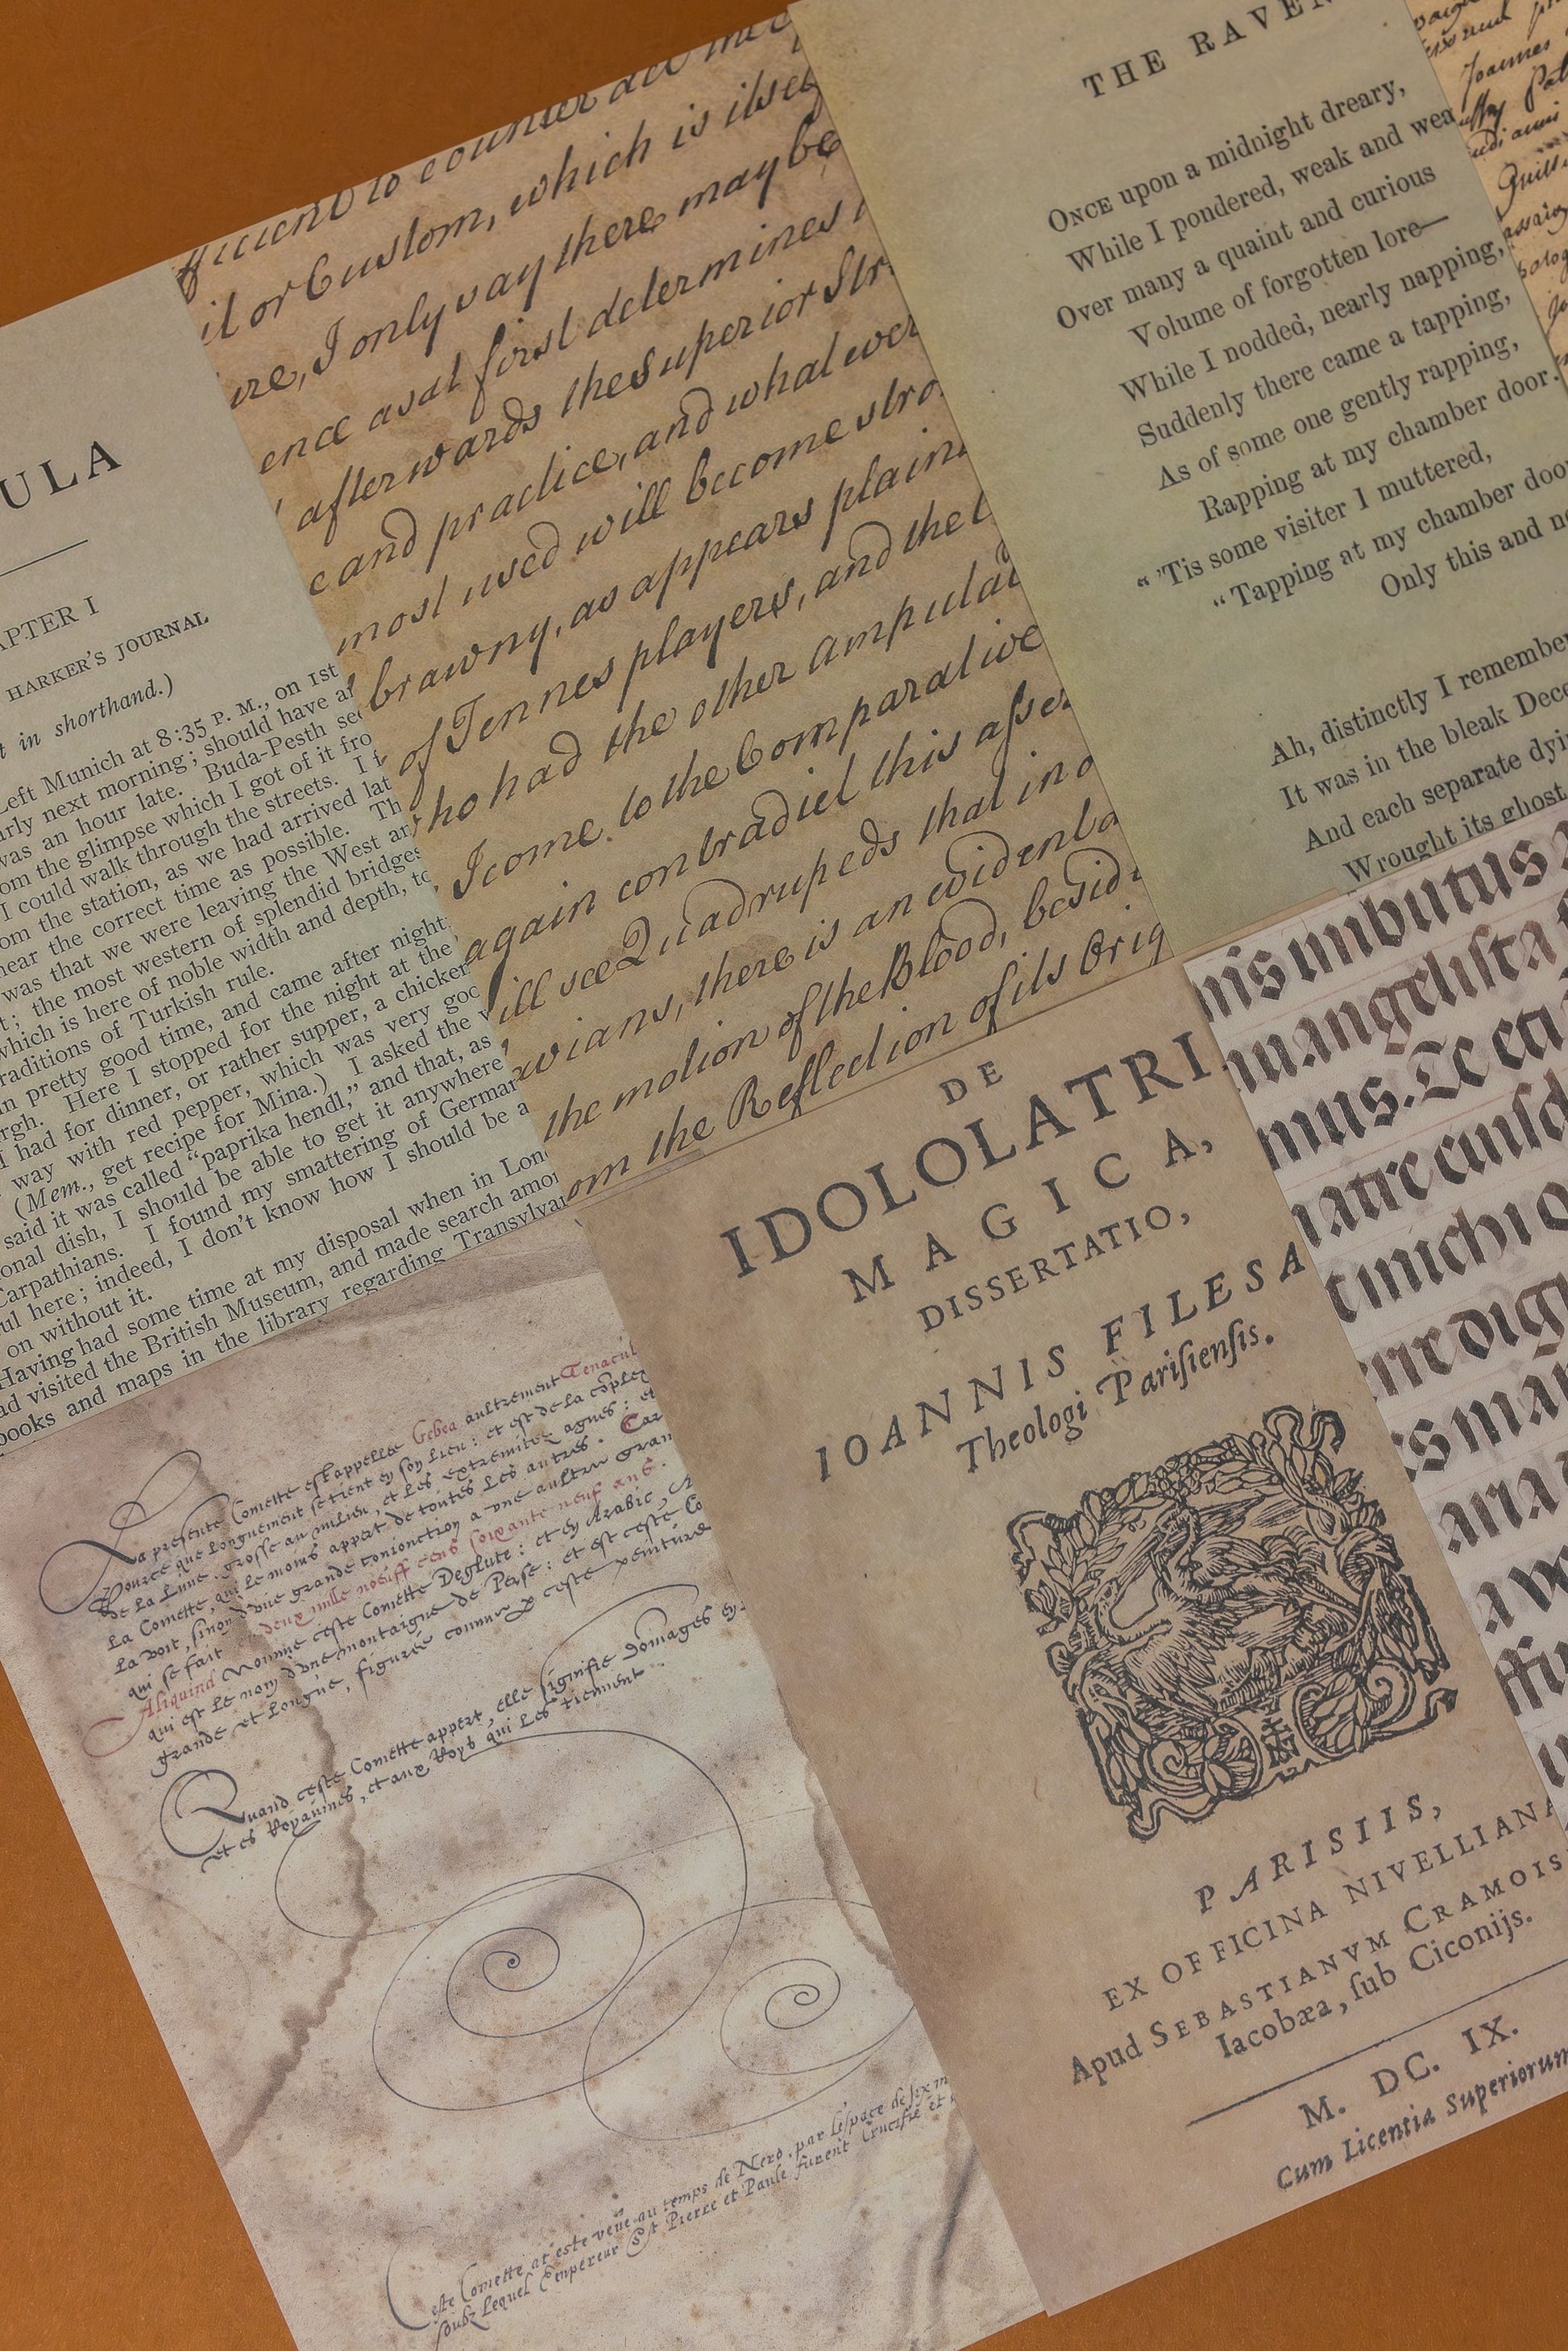 ULA
APTER I
HARKER'S JOURNAL
t in shorthand.)
Left Munich at 8:35 P. M., on 1st
rly next morning; should have ar
was an hour late. Buda-Pesth see
om the glimpse which I got of it fro
I could walk through the streets. I f
om the station, as we had arrived lat
near the correct time as possible. Th
was that we were leaving the West an
t; the most western of splendid bridges
which is here of noble width and depth, to
raditions of Turkish rule.
n pretty good time, and came after night
rgh. Here I stopped for the night at the
I had for dinner, or rather supper, a chicken
way with red pepper, which was very goo
(Mem., get recipe for Mina.) I asked the w
said it was called "paprika hendl," and that, as
onal dish, I should be able to get it anywhere
Carpathians. I found my smattering of German
ul here; indeed, I don't know how I should be a
on without it.
Having had some time at my disposal when in Lon
ad visited the British Museum, and made search amon
books and maps in the library regarding Transylvan
fficient to counter act the
il or Custom, which is itself
ere, I only say there may be
ence as at first determines
afterwards the Superior Str
e and practice, and what ever
most used will become stro
brawny, as appears plain
of Tennes players, and the l
ho had the other amputat
I come to the Comparative
again contradict this asser
ill see Quadrupeds that in o
wians, there is an evident a
the motion of the Blood, besid
om the Reflection of its Orig
THE RAVEN
ONCE upon a midnight dreary,
While I pondered, weak and wea
Over many a quaint and curious
Volume of forgotten lore—
While I nodded, nearly napping,
Suddenly there came a tapping,
As of some one gently rapping,
Rapping at my chamber door.
"'Tis some visiter I muttered,
"Tapping at my chamber door
Only this and no
Ah, distinctly I remember
It was in the bleak Dece
And each separate dyin
Wrought its ghost
Joannes
La presente Comette est appellee Gebea aultrement Tenacul
Pource que longuement se tient en son lieu: et est de la coplex
de la Lune. grosse au milieu, et les extremitez agues: et
La Comette, qui le moins appert de toutes les autres. Car
La voit, sinon d'une grande conionction a une aultre gran
qui se fait deux mille neuff cens soixante neuf ans.
Aliquind Nomme ceste Comette Deglute: et en Arabic,
qui est le nom d'une montaigne de Perse: et est ceste Co
grande et longue, figuree comme ceste peinture
Quand ceste Comette appert, elle signifie domages es
et es Royaumes, et aux Roys qui les tiennent
Ceste Comette at este veue au temps de Nero. par l'espace de six m
soubz lequel Empereur St Pierre et Paule furent Crucifie et
DE
IDOLOLATRI
MAGICA,
DISSERTATIO,
IOANNIS FILESA
Theologi Parisiensis.
PARISIIS,
EX OFFICINA NIVELLIANA
Apud SEBASTIANVM CRAMOIS
Iacobæa, sub Ciconijs.
M. DC. IX.
Cum Licentia Superiorum
nis imbutus
uangelista
mus. Te eti
matre
t michi
digi